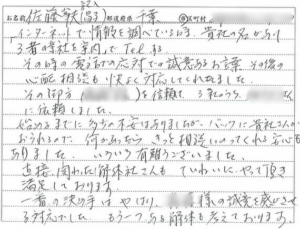 お名前 佐藤 (昌子) 都道府県 千葉
インターネットで情報を調べている時、貴社の名が
3者の会社を案内してTelする
その時の電話での応対での誠意あるお言葉 その後の
心配 相談も快よく対応してくれました。
を信頼して 3社のうち、
に依頼しました。
始めるまでに多少の不安はありましたが、バックに貴社さんが
おられるので 何かあったら きっと相談にのってくれる安心も
ありました。いろいろ有難うございました。
直接、関わった解体社さんも ていねいに、やって頂き
満足しております。
一番の決め手は やはり、 様の誠意を感じさせ
る対応でした もう一つある解体も考えております。